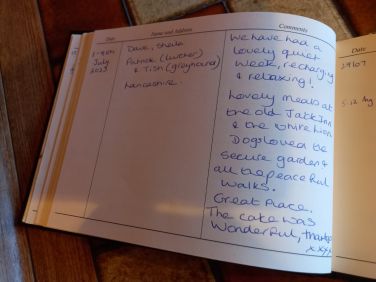 Date
Name and Address
Comments
1-8th
July
2023
Dave, Sheila
Patrick (lurcher)
& Tish (greyhound)
Lancashire.
We have had a
lovely quiet
week, recharging
& relaxing!
Lovely meals at
the old Jack Inn
& the White Lion
Dogs loved the
secure garden &
all the peaceful
walks.
Great Place.
The cake was
Wonderful, thanks
x xxx
Date
29/07
5-12 Aug